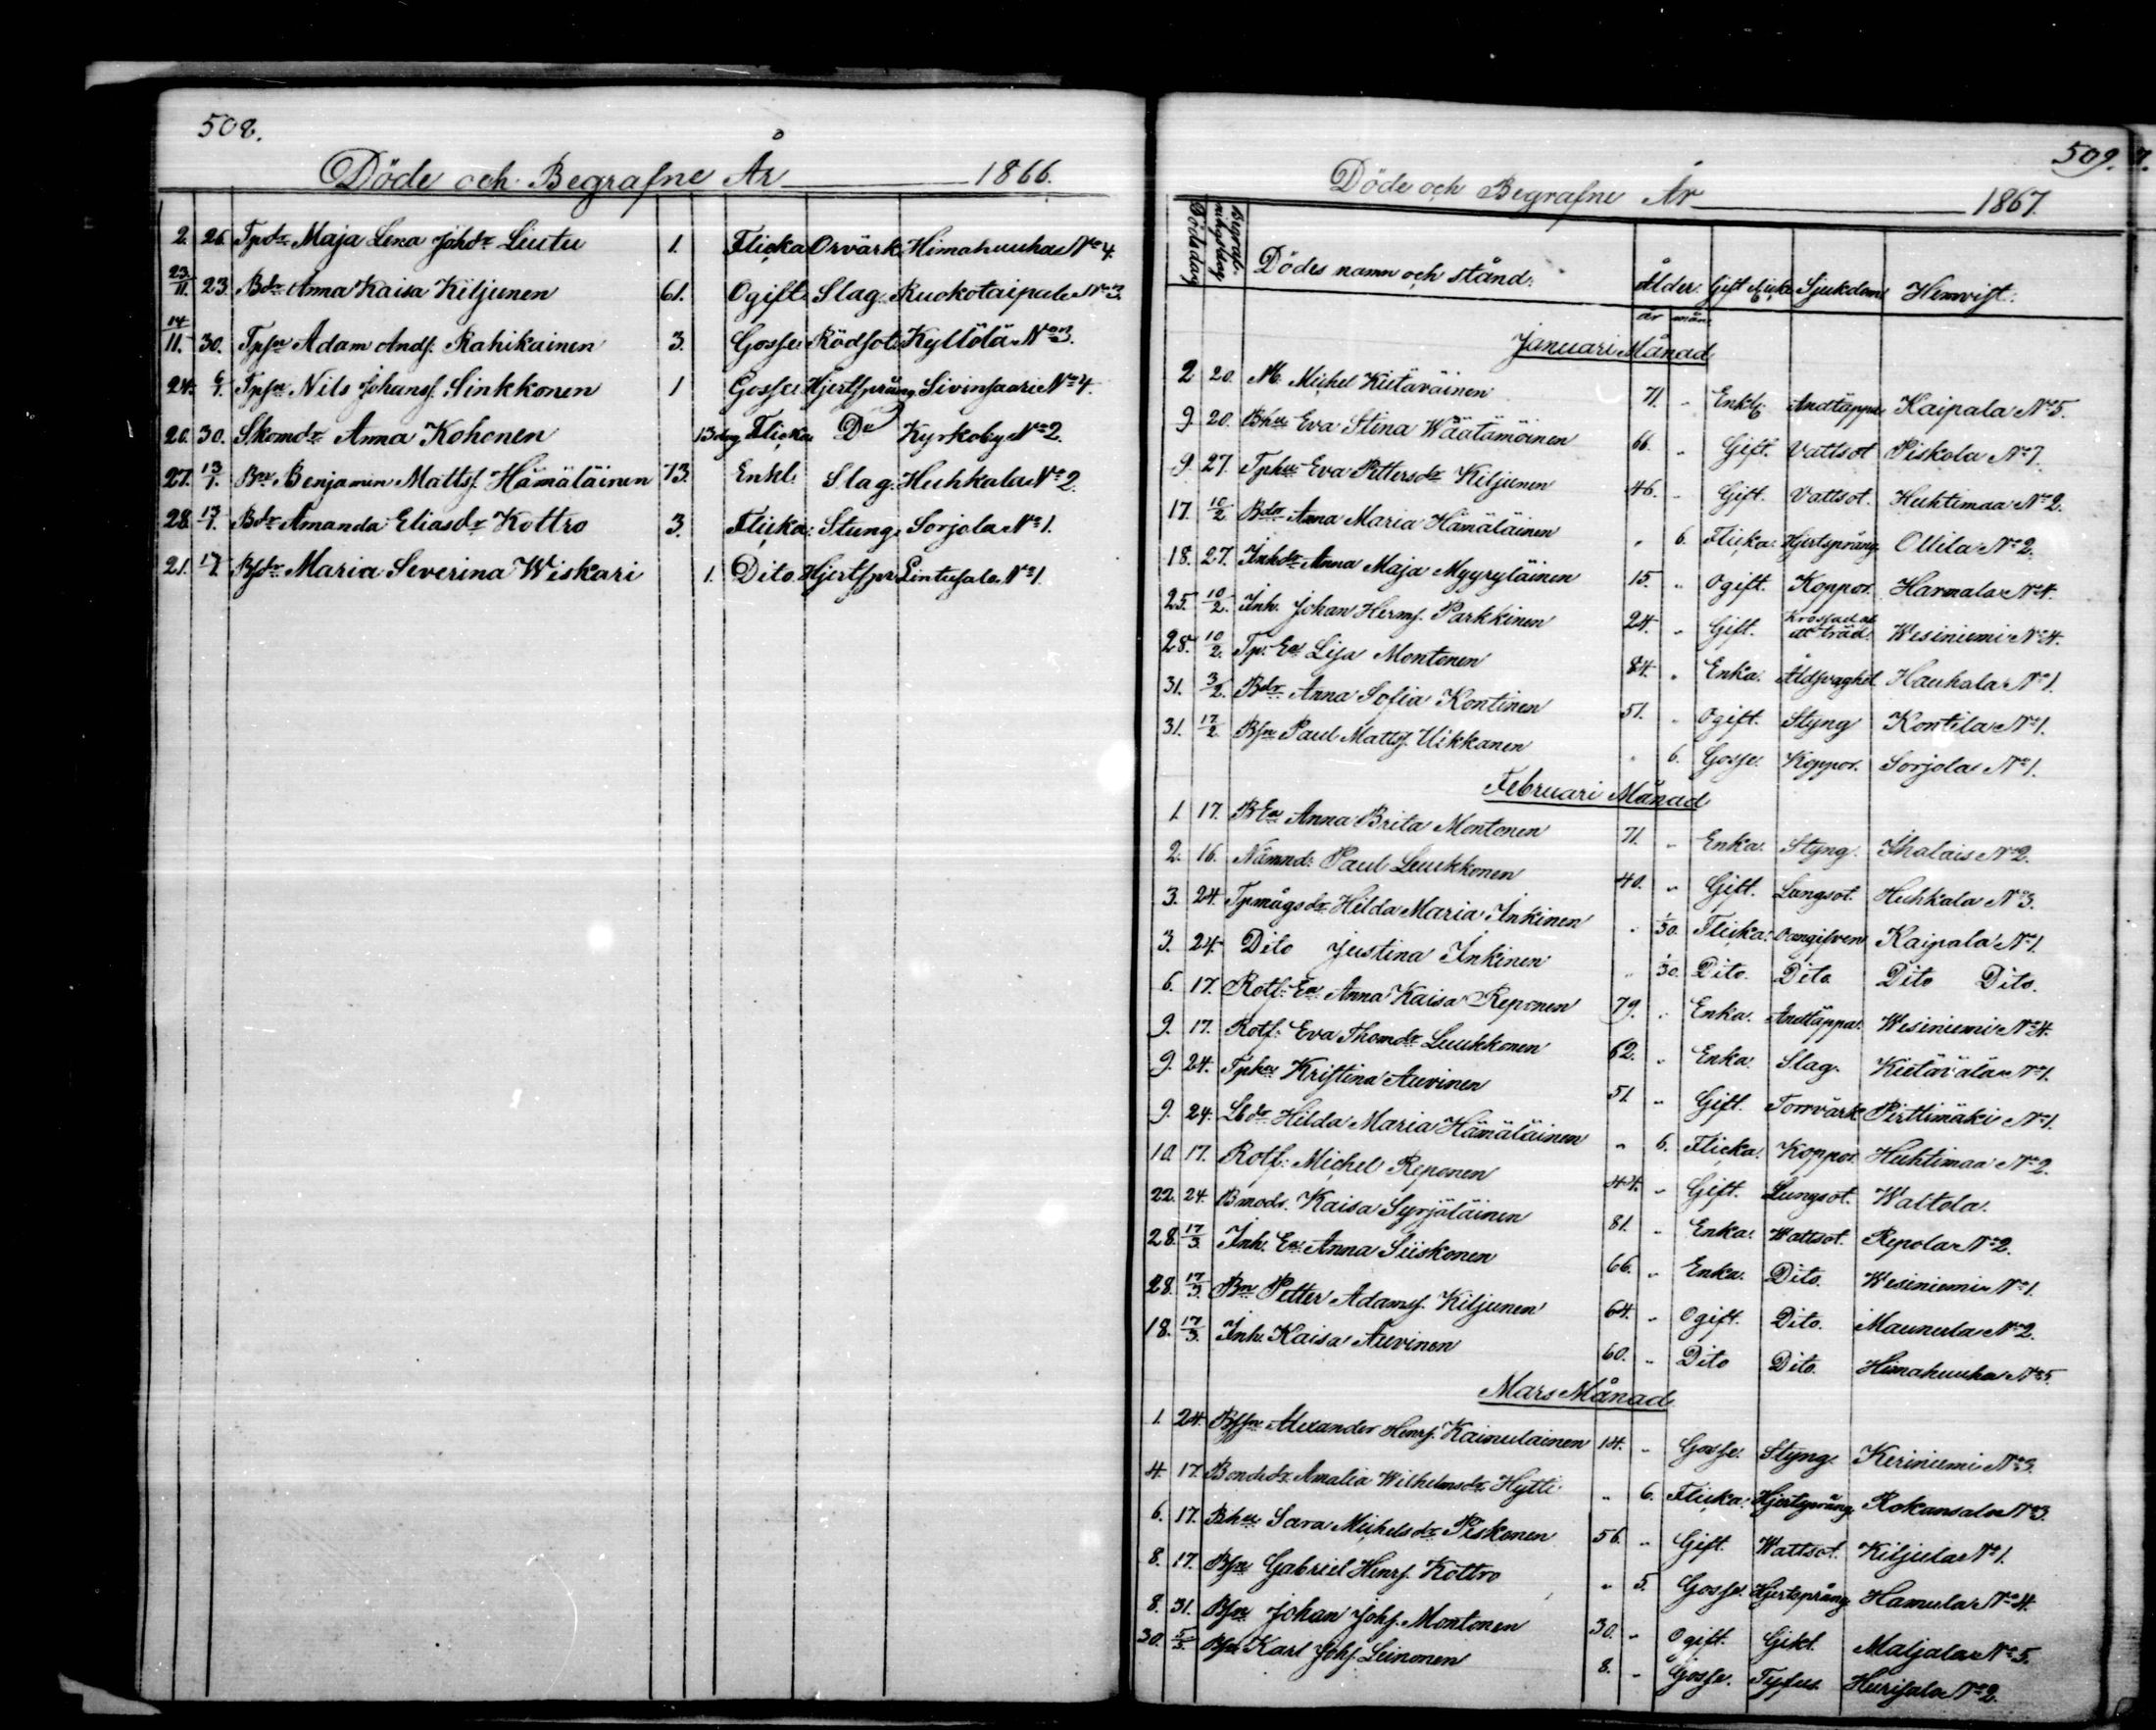 508.
Döde och Begrafne År 1866.
2. 26. Tpdr Maja Lena Johdr Liutu 1. Flicka Orvärk Himahuuha No 4.
23/11. 23. Bdr Anna Kaisa Kiljunen 61. Ogift Slag. Ruokotaipale No 3.
14/11. 30. Tpsn Adam Ands. Rahikainen 3. Gosse Rödsot. Kyllölä No 3.
24. 6/1. Tpsn Nils Johans. Sinkkonen 1 Gosse Hjertsprång Sivinsaari No 4.
20. 30. Skomdr Anna Kohonen 13 dag. Flicka Do Kyrkoby No 2.
27. 13/1. Bn Benjamin Matts. Hämäläinen 73. Enkl. Slag. Huhkala No 2.
28. 13/1. Bdr Amanda Eliasdr Kottro 3. Flicka. Stung. Sorjola No 1.
21. 17/1. Bsdr Maria Severina Wiskari 1. Dito Hjertspr. Lintusalo No 1.
509.
Döde och Begrafne År 1867.
Dödsdag Begrafningsdag Dödes namn och stånd. Ålder. Gift Ogift Sjukdom Hemvist.
år mån.
Januari Månad
2 20. M. Michel Kiitäväinen 71. " Enkl. Andtäppa Kaipala No 5.
9 20. Bhu Eva Stina Wäätämöinen 66. " Gift. Vattsot Piskola No 7.
9. 27. Tphu Eva Pettersdr Kiljunen 46. " Gift. Vattsot. Huhtimaa No 2.
17. 10/2 Bdr Anna Maria Hämäläinen " 6. Flicka. Hjertsprång Ollila No 2.
18. 27. Inhdr Anna Maja Myyryläinen 15. " Ogift. Koppor. Harmala No 4.
25. 10/2. Inh. Johan Herms. Parkkinen 24. " Gift. Krossad af ett träd. Wesiniemi No 4.
28. 10/2. Tp. Ea Lisa Montonen 84. " Enka. Åldsvaghet Haukala No 1.
31. 3/2. Bdr Anna Sofia Kontinen 51. " Ogift. Styng Kontila No 1.
31. 17/2. Bsn Paul Matts. Ukkanen " 6. Gosse. Koppor. Sorjola No 1.
Februari Månad
1. 17. B Ea Anna Brita Montonen 71. " Enka. Styng. Ihalais No 2.
2. 16. Nämnd: Paul Luukkonen 40. " Gift. Lungsot. Huhkala No 3.
3. 24. Tpmågsdr Hilda Maria Inkinen " 1/30. Flicka. Oangifven Kaipala No 1.
3. 24. Dito Justina Inkinen " 1/30. Dito. Dito Dito Dito.
6. 17. Rotf. Ea Anna Kaisa Reponen 79. " Enka. Andtäppa. Wesiniemi No 4.
9. 17. Rotf. Eva Thomdr Luukkonen 62. " Enka Slag. Kiitävälä No 1.
9. 24. Tphu Kristina Auvinen 51. " Gift. Torrvärk Pirttimäki No 1.
9. 24. Lbdr Hilda Maria Hämäläinen " 6. Flicka. Koppor. Huhtimaa No 2.
10. 17. Rotf: Michel Reponen 44. " Gift. Lungsot. Waltola.
22. 24. Bmodr. Kaisa Syrjäläinen 81. " Enka. Wattsot. Repola No 2.
28. 17/3. Inh. Ea Anna Siiskonen 66. " Enka. Dito. Wesiniemi No 1.
28. 17/3. Bn Petter Adams. Kiljunen 64. " Ogift. Dito. Maunula No 2.
18. 17/3. Inh. Kaisa Auvinen 60. " Dito Dito. Himahuuha No 5.
Mars Månad
1. 24. Bssn Alexander Henrs. Kainulainen 14. " Gosse. Styng. Keriniemi No 3.
4. 17. Bondedr Amalia Wilhelmsdr Hytti " 6. Flicka. Hjertsprång Rokansalo No 3.
6. 17. Bhu Sara Michelsdr Piskonen 56. " Gift. Wattsot. Kiljula No 1.
8. 17. Bsn Gabriel Henrs. Kottro " 5. Gosse. Hjertsprång Hamula No 4.
8. 31. Bsn Johan Johs. Montonen 30. " Ogift. Gikt. Maljala No 5.
30. 5/3. Bsn Karl Johs. Leinonen 8. " Gosse. Tyfus. Hurisalo No 2.